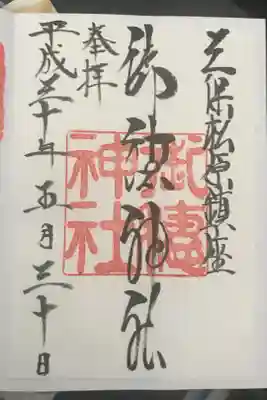 三保松原鎮座
御穂神社
奉拝
平成三十年五月三十日
御穗神社